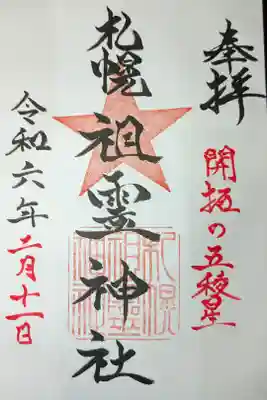 奉拝
開拓の五稜星
札幌祖霊神社
令和六年二月十一日